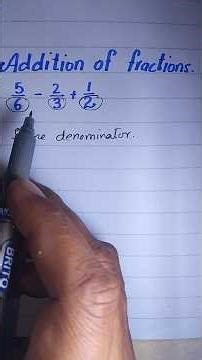 Addition of fractions.
5/6 - 2/3 + 1/2
denominator.
BRITO